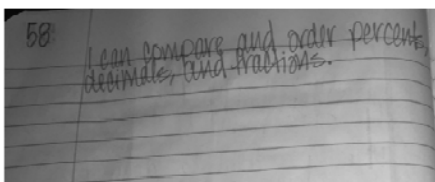 58
I can compare and order percents,
decimals, and fractions.